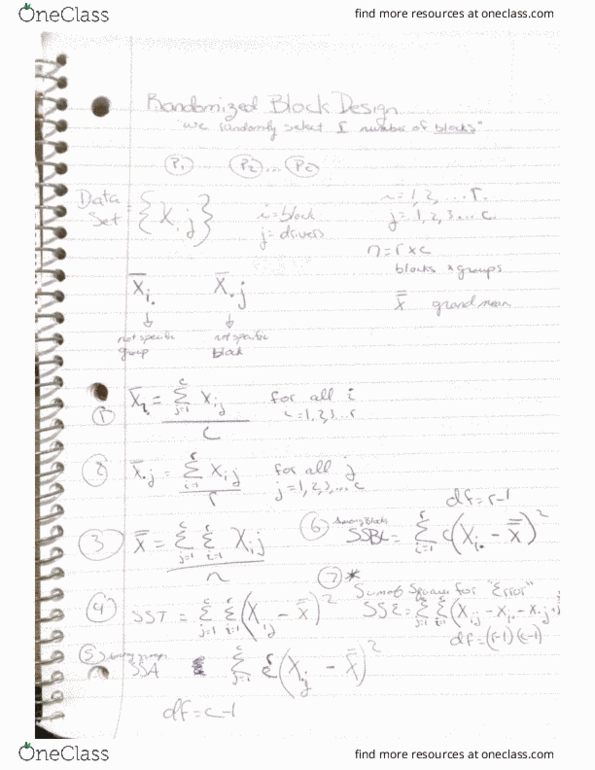 OneClass
find more resources at oneclass.com
Randomized Block Design
"we randomly select r number of blocks"
P₁ P₂ ... P_c
Data Set = {X_ij}
i = block
j = drivers
i = 1, 2, .... r.
j = 1, 2, 3... c.
n = r x c
blocks x groups
X̿ grand mean
X̄i. X̄.j
↓ ↓
not specific group
not specific block
① X̄i. = Σ(j=1 to c) Xij / c for all i
i = 1, 2, 3...r
② X̄.j = Σ(i=1 to r) Xij / r for all j
j = 1, 2, 3, ... c
③ X̿ = Σ(j=1 to c) Σ(i=1 to r) Xij / n
⑥ Among Blocks
SSBL = Σ(i=1 to r) c(Xi. - X̿)²
df = r-1
④ SST = Σ(j=1 to c) Σ(i=1 to r) (Xij - X̿)²
⑦ * Sum of Squares for "Error"
SSE = Σ(j=1 to c) Σ(i=1 to r) (Xij - Xi. - X.j
df = (r-1)(c-1)
⑤ Among groups
SSA Σ(j=1 to c) (X.j - X̿)²
df = c-1
OneClass
find more resources at oneclass.com